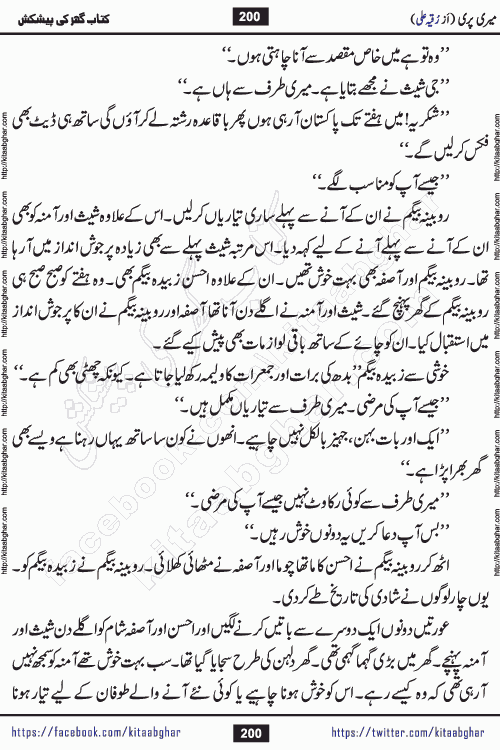 کتاب گھر کی پیشکش 200 میری پری (از رقیہ علی)
”وہ تو ہے میں خاص مقصد سے آنا چاہتی ہوں۔“
”جی شیث نے مجھے بتایا ہے۔ میری طرف سے ہاں ہے۔“
”شکریہ! میں ہفتے تک پاکستان آ رہی ہوں پھر باقاعدہ رشتہ لے کر آؤں گی ساتھ ہی ڈیٹ بھی
فکس کر لیں گے۔“
”جیسے آپ کو مناسب لگے۔“
روبینہ بیگم نے ان کے آنے سے پہلے ساری تیاریاں کر لیں۔ اس کے علاوہ شیث اور آمنہ کو بھی
ان کے آنے سے پہلے آنے کے لیے کہہ دیا۔ اس مرتبہ شیث پہلے سے بھی زیادہ پر جوش انداز میں آ رہا
تھا۔ روبینہ بیگم اور آصفہ بھی بہت خوش تھیں۔ ان کے علاوہ احسن زبیدہ بیگم بھی۔ وہ ہفتے کو صبح صبح ہی
روبینہ بیگم کے گھر پہنچ گئے۔ شیث اور آمنہ نے اگلے دن آنا تھا آصفہ اور روبینہ بیگم نے ان کا پر جوش انداز
میں استقبال کیا۔ ان کو چائے کے ساتھ باقی لوازمات بھی پیش کیے گئے۔
خوشی سے زبیدہ بیگم ”بدھ کی برات اور جمعرات کا ولیمہ رکھ لیا جاتا ہے۔ کیونکہ چھٹی بھی کم ہے۔“
”جیسے آپ کی مرضی۔ میری طرف سے تیاریاں مکمل ہیں۔“
”ایک اور بات بہن، جہیز بالکل نہیں چاہیے۔ انھوں نے کون سا ساتھ یہاں رہنا ہے ویسے بھی
گھر بھرا پڑا ہے۔“
”میری طرف سے کوئی رکاوٹ نہیں جیسے آپ کی مرضی۔“
”بس آپ دعا کریں یہ دونوں خوش رہیں۔“
اٹھ کر روبینہ بیگم نے احسن کا ماتھا چوما اور آصفہ نے مٹھائی کھلائی۔ روبینہ بیگم نے زبیدہ بیگم کو۔
یوں چار لوگوں نے شادی کی تاریخ طے کر دی۔
عورتیں دونوں ایک دوسرے سے باتیں کرنے لگیں اور احسن اور آصفہ شام کو اگلے دن شیث اور
آمنہ پہنچے۔ گھر میں بڑی گہما گہمی تھی۔ گھر دلہن کی طرح سجایا گیا تھا۔ سب بہت خوش تھے آمنہ کو سمجھ نہیں
آ رہی تھی کہ وہ کیسے رہے۔ اس کو خوش ہونا چاہیے یا کوئی نئے آنے والے طوفان کے لیے تیار ہونا
https://facebook.com/kitaabghar 200 https://twitter.com/kitaabghar
http://kitaabghar.com